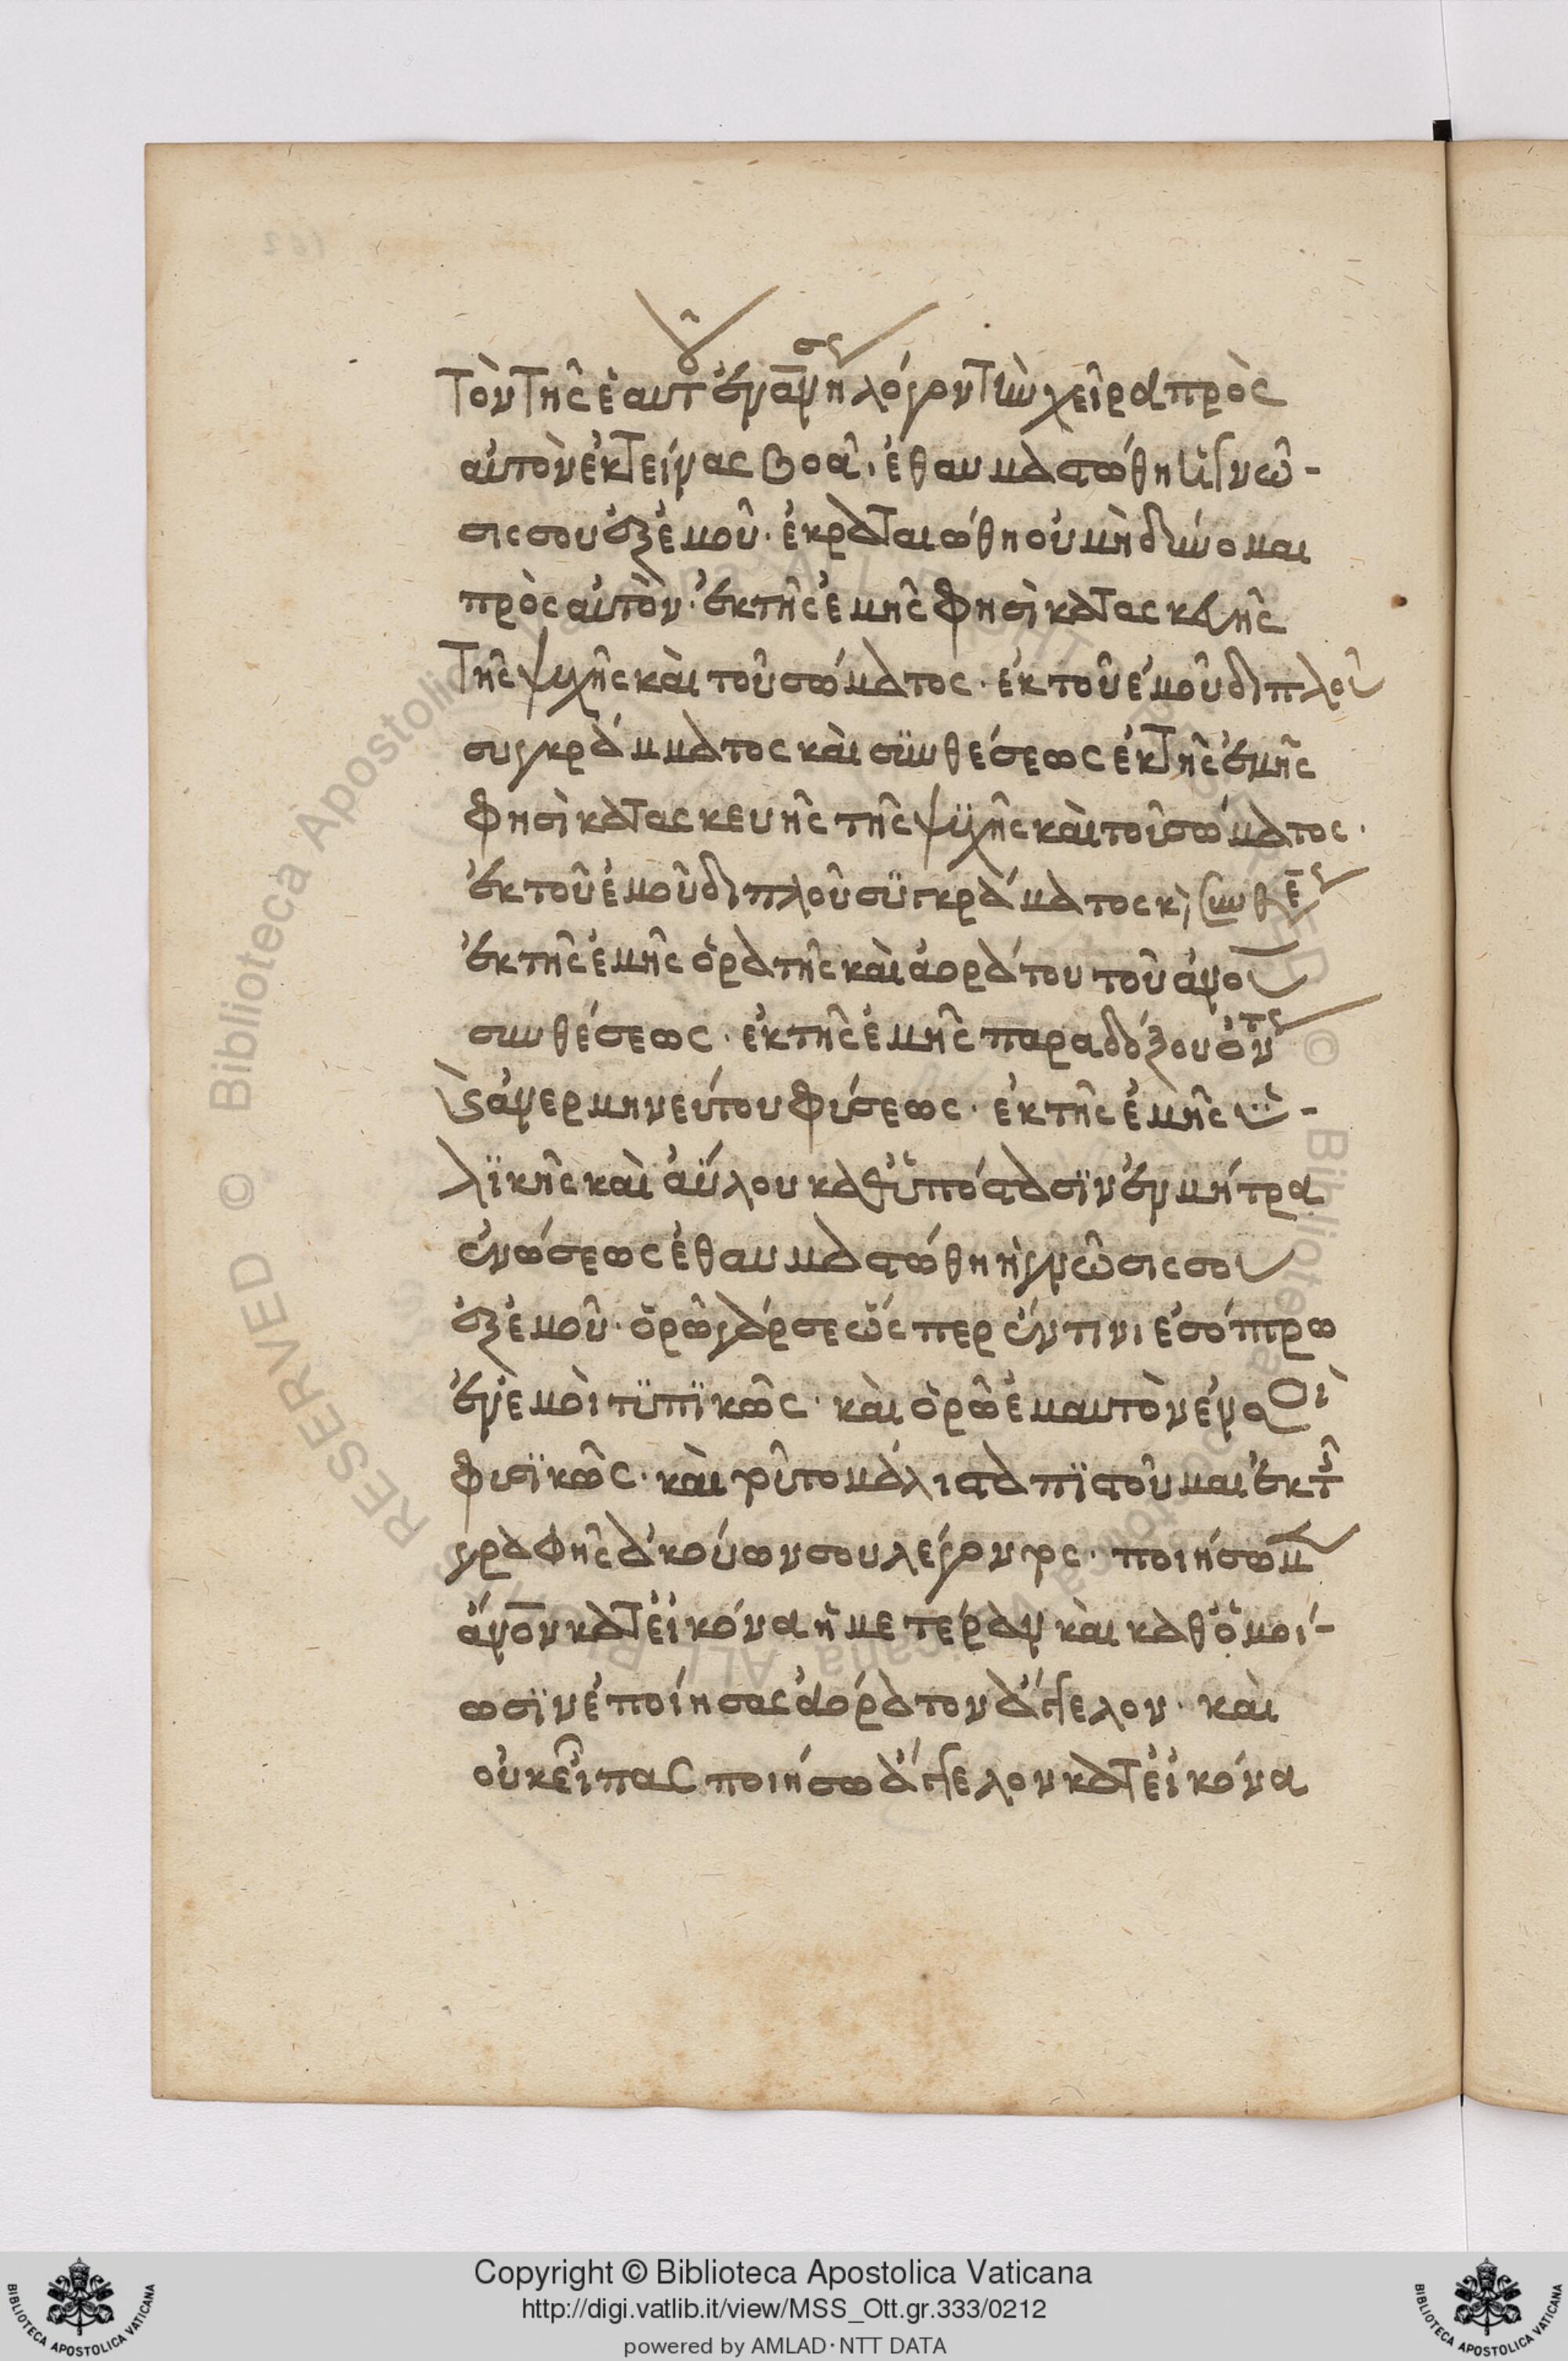 τὸν τῆς ἑαυτοῦ ἐναν̅ης λόγον τὴν χεῖρα πρὸς
αὐτὸν ἐκτείνας βοᾶ· ἐθαυμαστώθη ἡ γνῶ-
σις σου ἐξ ἐμοῦ· ἐκραταιώθη οὐ μὴ δύνομαι
πρὸς αὐτὸν· ἐκ τῆς ἐμῆς φησὶ κατασκευῆς
τῆς ψυχῆς καὶ τοῦ σώματος· ἐκ τοῦ ἐμοῦ διπλοῦ
συγκράμματος καὶ συνθέσεως ἐκ τῆς ἐμῆς
φησὶ κατασκευῆς τῆς ψϋχῆς καὶ τοῦ σώματος·
ἐκ τοῦ ἐμοῦ διπλοῦ σϋγκράματος κ συνθε
ἐκ τῆς ἐμῆς ὁρατῆς καὶ ἀοράτου τοῦ ἀνου
συνθέσεως· ἐκ τῆς ἐμῆς παραδόξου ὄντς
κ ἀνερμηνεύτου φύσεως· ἐκ τῆς ἐμῆς ὑ-
λϊκῆς καὶ ἀΰλου καθ' ὑπόστασϊν ἐν μήτρα
ἑνώσεως ἐθαυμαστώθη ἡ γνῶσις σου
ἐξ ἐμοῦ· ὁρῶ γάρ σε ὥσπερ ἔν τινι ἐσόπτρω
ἐν ἐμοὶ τϋπϊκῶς· καὶ ὁρῶ ἐμαυτὸν ἐν σοὶ
φυσϊκῶς· καὶ τοῦτο μάλιστα πϊστοῦμαι ἐκ τῆς
γραφῆς ἀκούων σου λέγοντος· ποιήσωμ
ἄνον κατ' εἰκόνα ἡμετέραν καὶ καθ' ὁμοί-
ωσϊν ἐποίησας ἀόρατον ἄγγελον· καὶ
οὐκ εἶπας ποιήσω ἄγγελον κατ' εἰκόνα
Copyright © Biblioteca Apostolica Vaticana
http://digi.vatlib.it/view/MSS_Ott.gr.333/0212
powered by AMLAD·NTT DATA